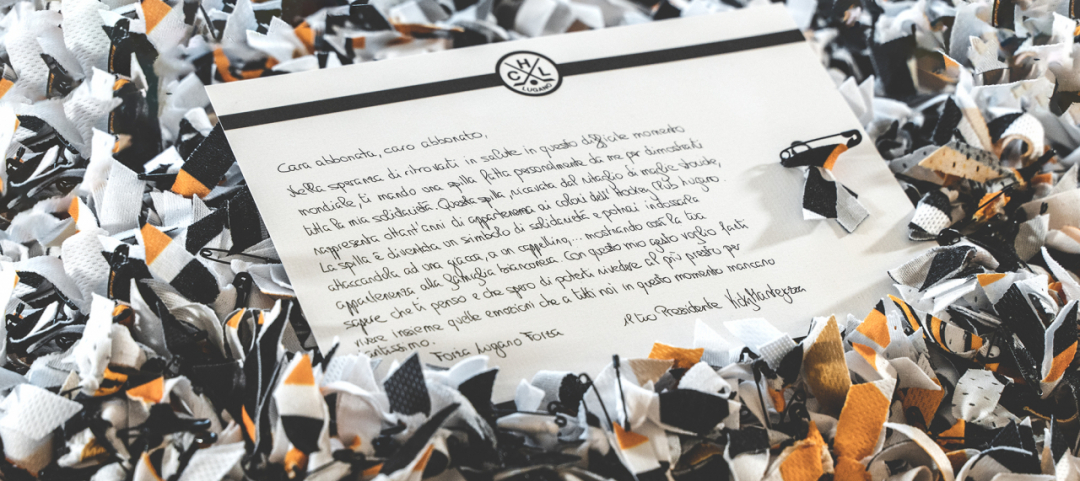 HCL
LUGANO
Cara abbonata, caro abbonato,
nella speranza di ritrovarti in salute in questo difficile momento
mondiale, ti mando una spilla fatta personalmente da me per dimostrarti
tutta la mia solidarietà. Questa spilla, ricavata dal ritaglio di maglie storiche,
rappresenta ottant'anni di appartenenza ai colori dell'Hockey Club Lugano.
La spilla è diventata un simbolo di solidarietà e potrai indossarla
attaccandola ad una giacca, a un cappellino,... mostrando così la tua
appartenenza alla famiglia bianconera. Con questo mio gesto voglio farti
sapere che ti penso e che spero di poterti rivedere al più presto per
vivere insieme quelle emozioni che a tutti noi in questo momento mancano
tantissimo.
Forza Lugano Forza
il tuo Presidente Vicky Mantegazza